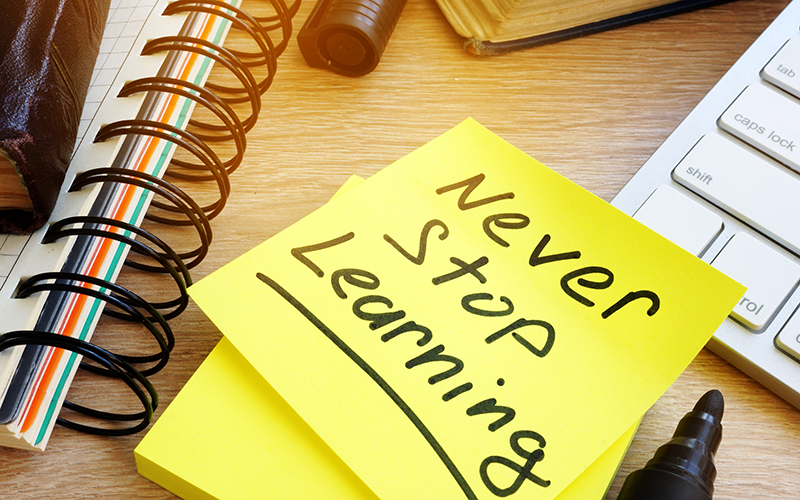 Never
Stop
Learning
tab
caps lock
shift
rol